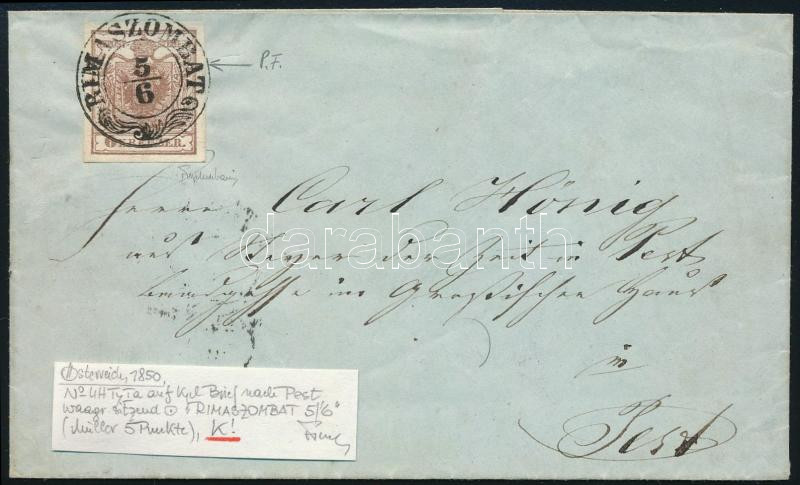 RIMASZOMBAT
5/6
P.F.
KREUZER.
Herrn Carl Hönig
aus Steyer der Zeit in Pest
im Großischen Haus
in
Pest
darabanth
Österreich, 1850,
No 4H Ty Ia auf Kpl. Brief nach Pest
waagr. sitzend RIMASZOMBAT 5/6"
(Müller 5 Punkte), K!